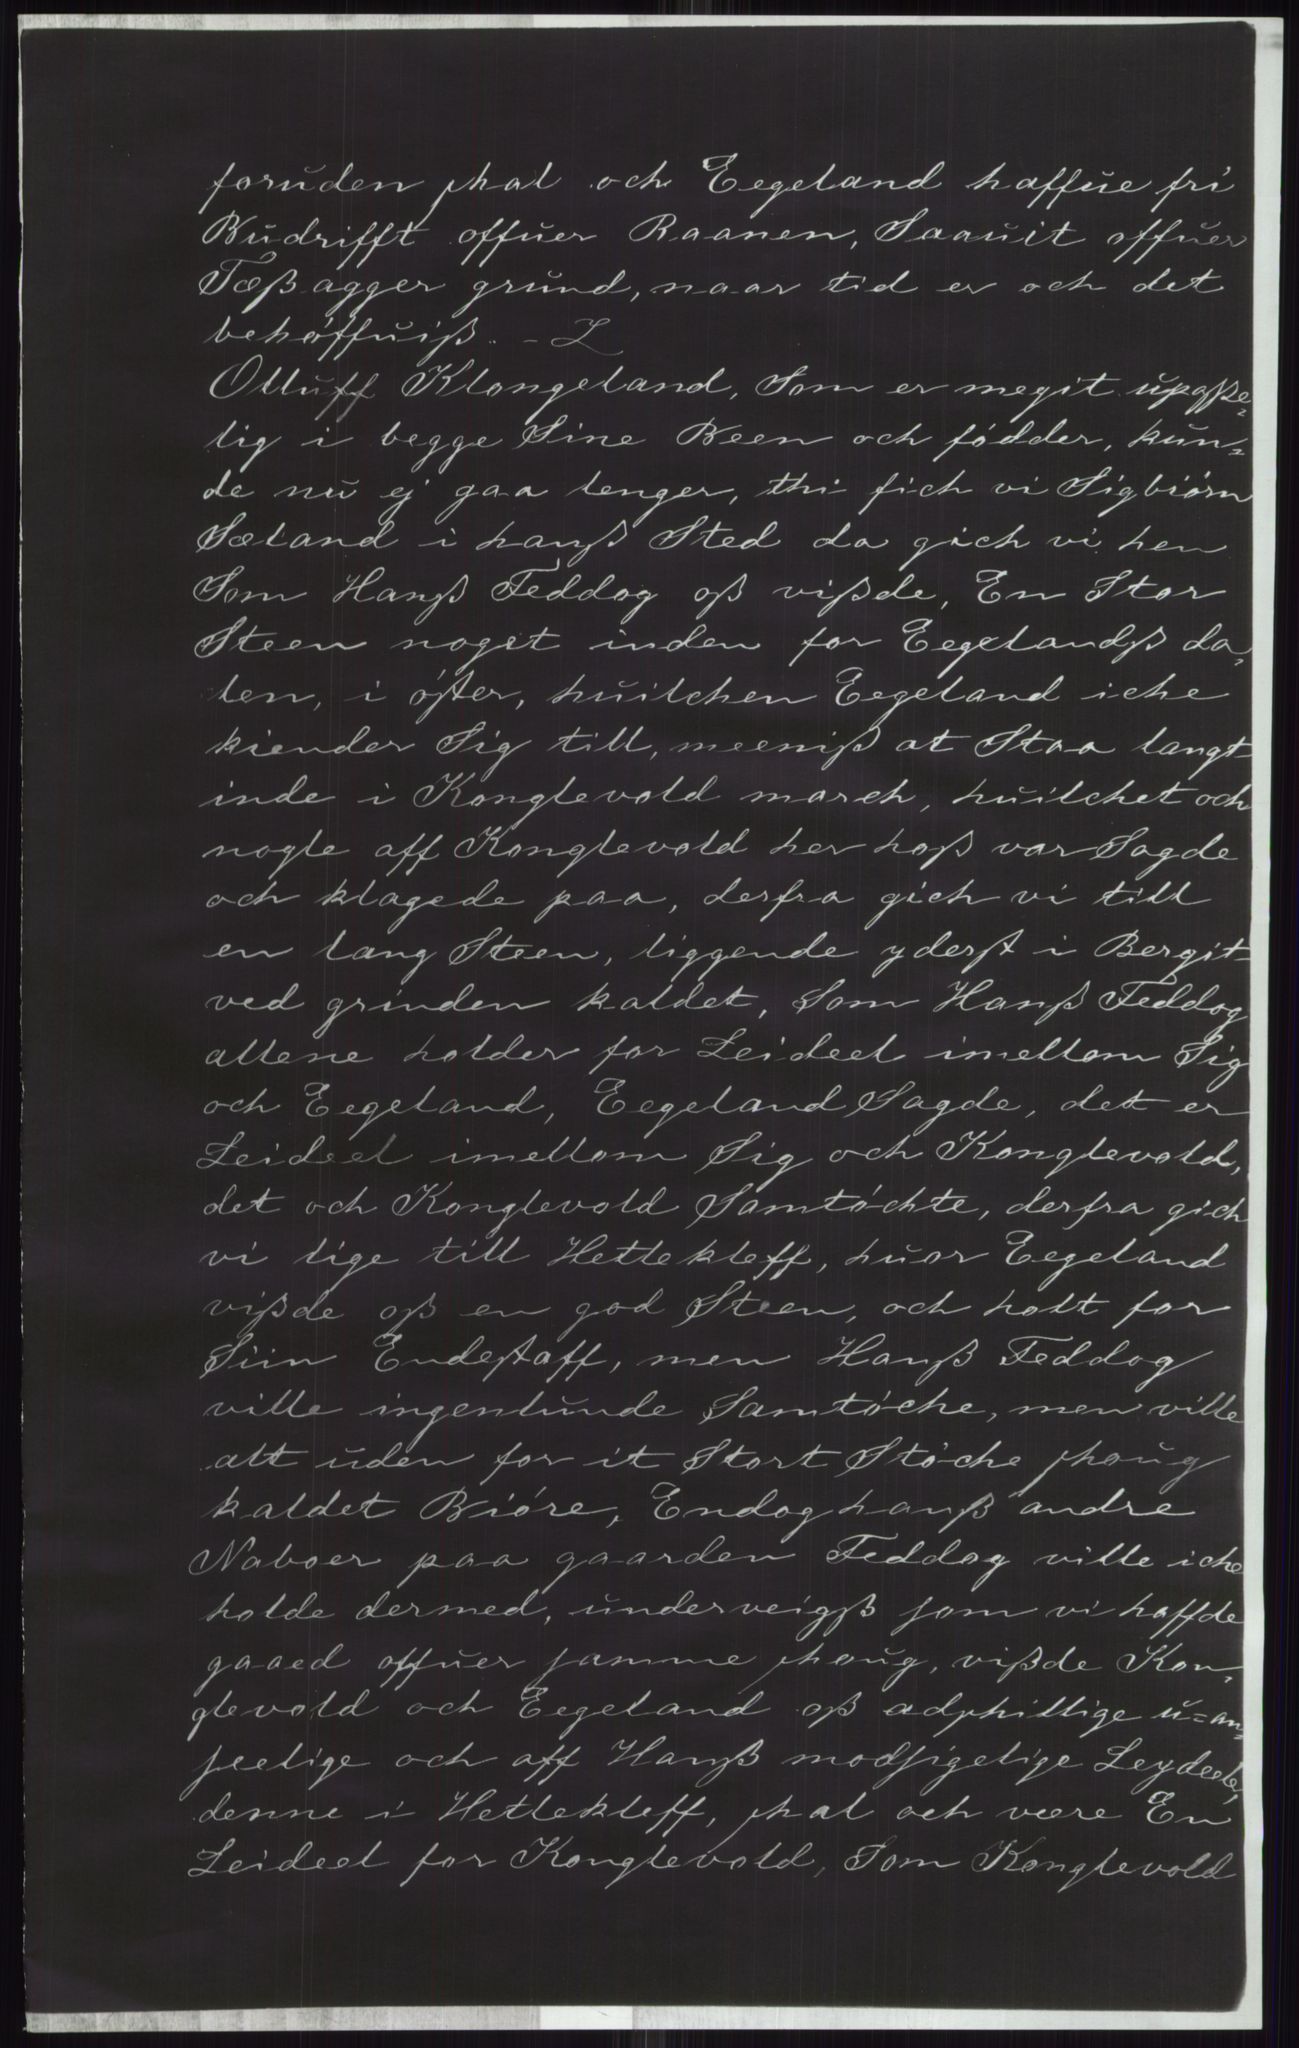 foruden skal och Eegeland haffue fri
Budrifft offuer Raanen, Saauit offuer
Tæßagger grund, naar tid er och det
behøffuiß. - L
Olluff Klongeland, Som er megit upaße=
lig i begge Sine Been och fødder, kun=
de nu ej gaa lenger, thi fich vi Sigbiørn
Sæland i hanß Sted da gich vi hen
Som Hanß Feddog oß vißde, En Stor
Steen noget inden for Eegelandß da,
len, i øster, huilchen Eegeland iche
kiender Sig till, meeniß at Staa langt-
inde i Konglevold march, huilchet och
nogle aff Konglevold her hoß var Sagde
och klagede paa, derfra gich vi till
en lang Steen, liggende yderst i Bergit-
ved grinden kaldet, Som Hanß Feddog
allene holder for Leideel imellom Sig
och Eegeland, Eegeland Sagde, det er
Leideel imellom Sig och Konglevold,
det och Konglevold Samtøchte, derfra gich
vi lige till Hettekleff, huor Eegeland
vißde oß en god Steen, och holt for
Siin Endestaff, men Hanß Feddog
ville ingenlunde Samtøche, men ville
alt uden for it Stort Støche skoug
kaldet Biøre, Endog hanß andre
Naboer paa gaarden Feddog ville iche
holde dermed, underveigß som vi haffde
gaaed offuer samme skoug, vißde Kon,
glevold och Eegeland oß adskillige u=an=
seelige och aff Hanß modsigelige Leydeeler,
denne i Hettekleff, skal och være En
Leideel for Konglevold, Som Konglevold